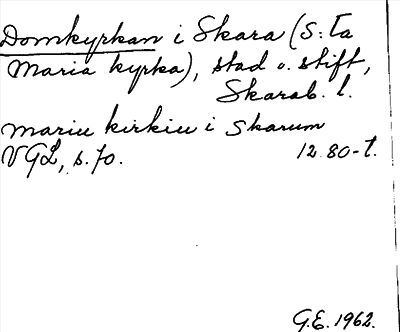 Domkyrkan i Skara (S:ta
Maria kyrka), stad o. stift,
Skarab. l.
mariu kirkiu i skarum
VGL, s. 70. 1280-t.
G.E. 1962.